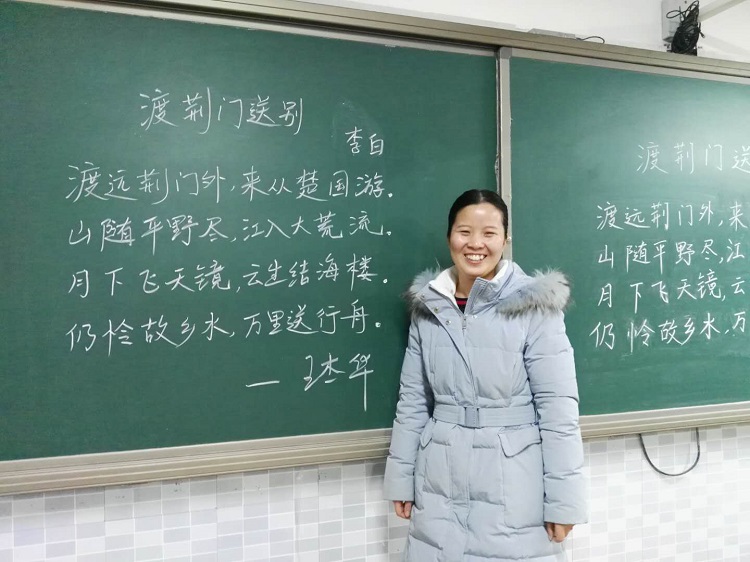 渡荆门送别
李白
渡远荆门外,来从楚国游。
山随平野尽,江入大荒流。
月下飞天镜,云生结海楼。
仍怜故乡水,万里送行舟。
— 王杰华
渡荆门送
渡远荆门外,来
山随平野尽,江
月下飞天镜,云
仍怜故乡水,万